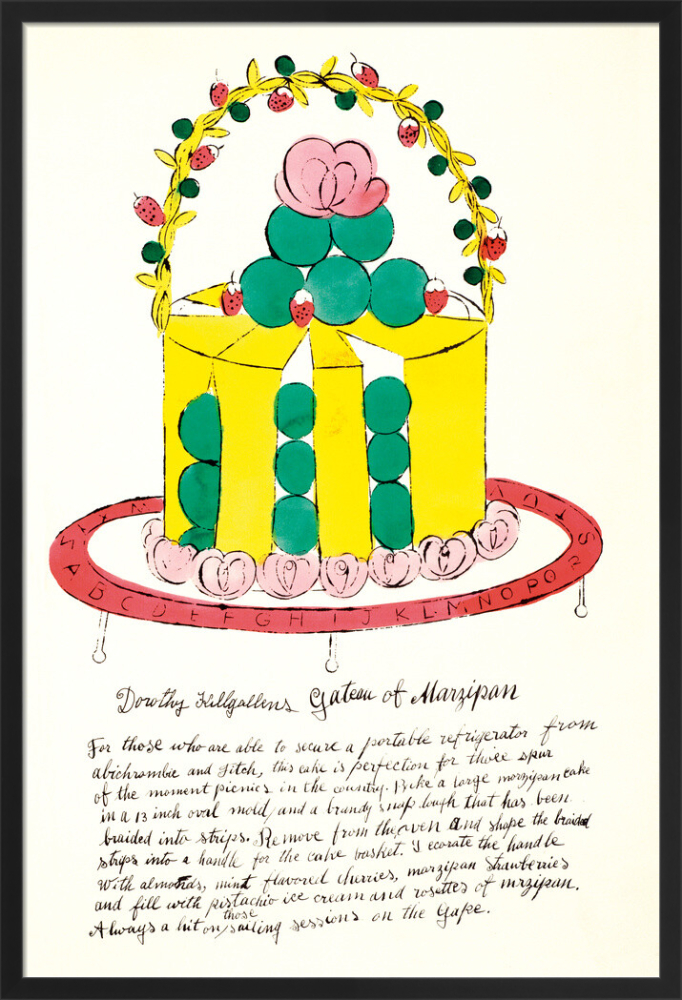 A B C D E F G H I J K L M N O P Q R S T U V W X Y
Dorothy Killgallens Gateau of Marzipan
For those who are able to secure a portable refrigerator from
abichrombie and Fitch, this cake is perfection for those spur
of the moment picnics in the country. Bake a large marzipan cake
in a 13 inch oval mold, and a brandy snap lough that has been
braided into strips. Remove from the oven and shape the braided
strips into a handle for the cake basket. Decorate the handle
with almonds, mint flavored cherries, marzipan strawberries
and fill with pistachio ice cream and rosettes of mrzipan.
Always a hit on those sailing sessions on the Gape.